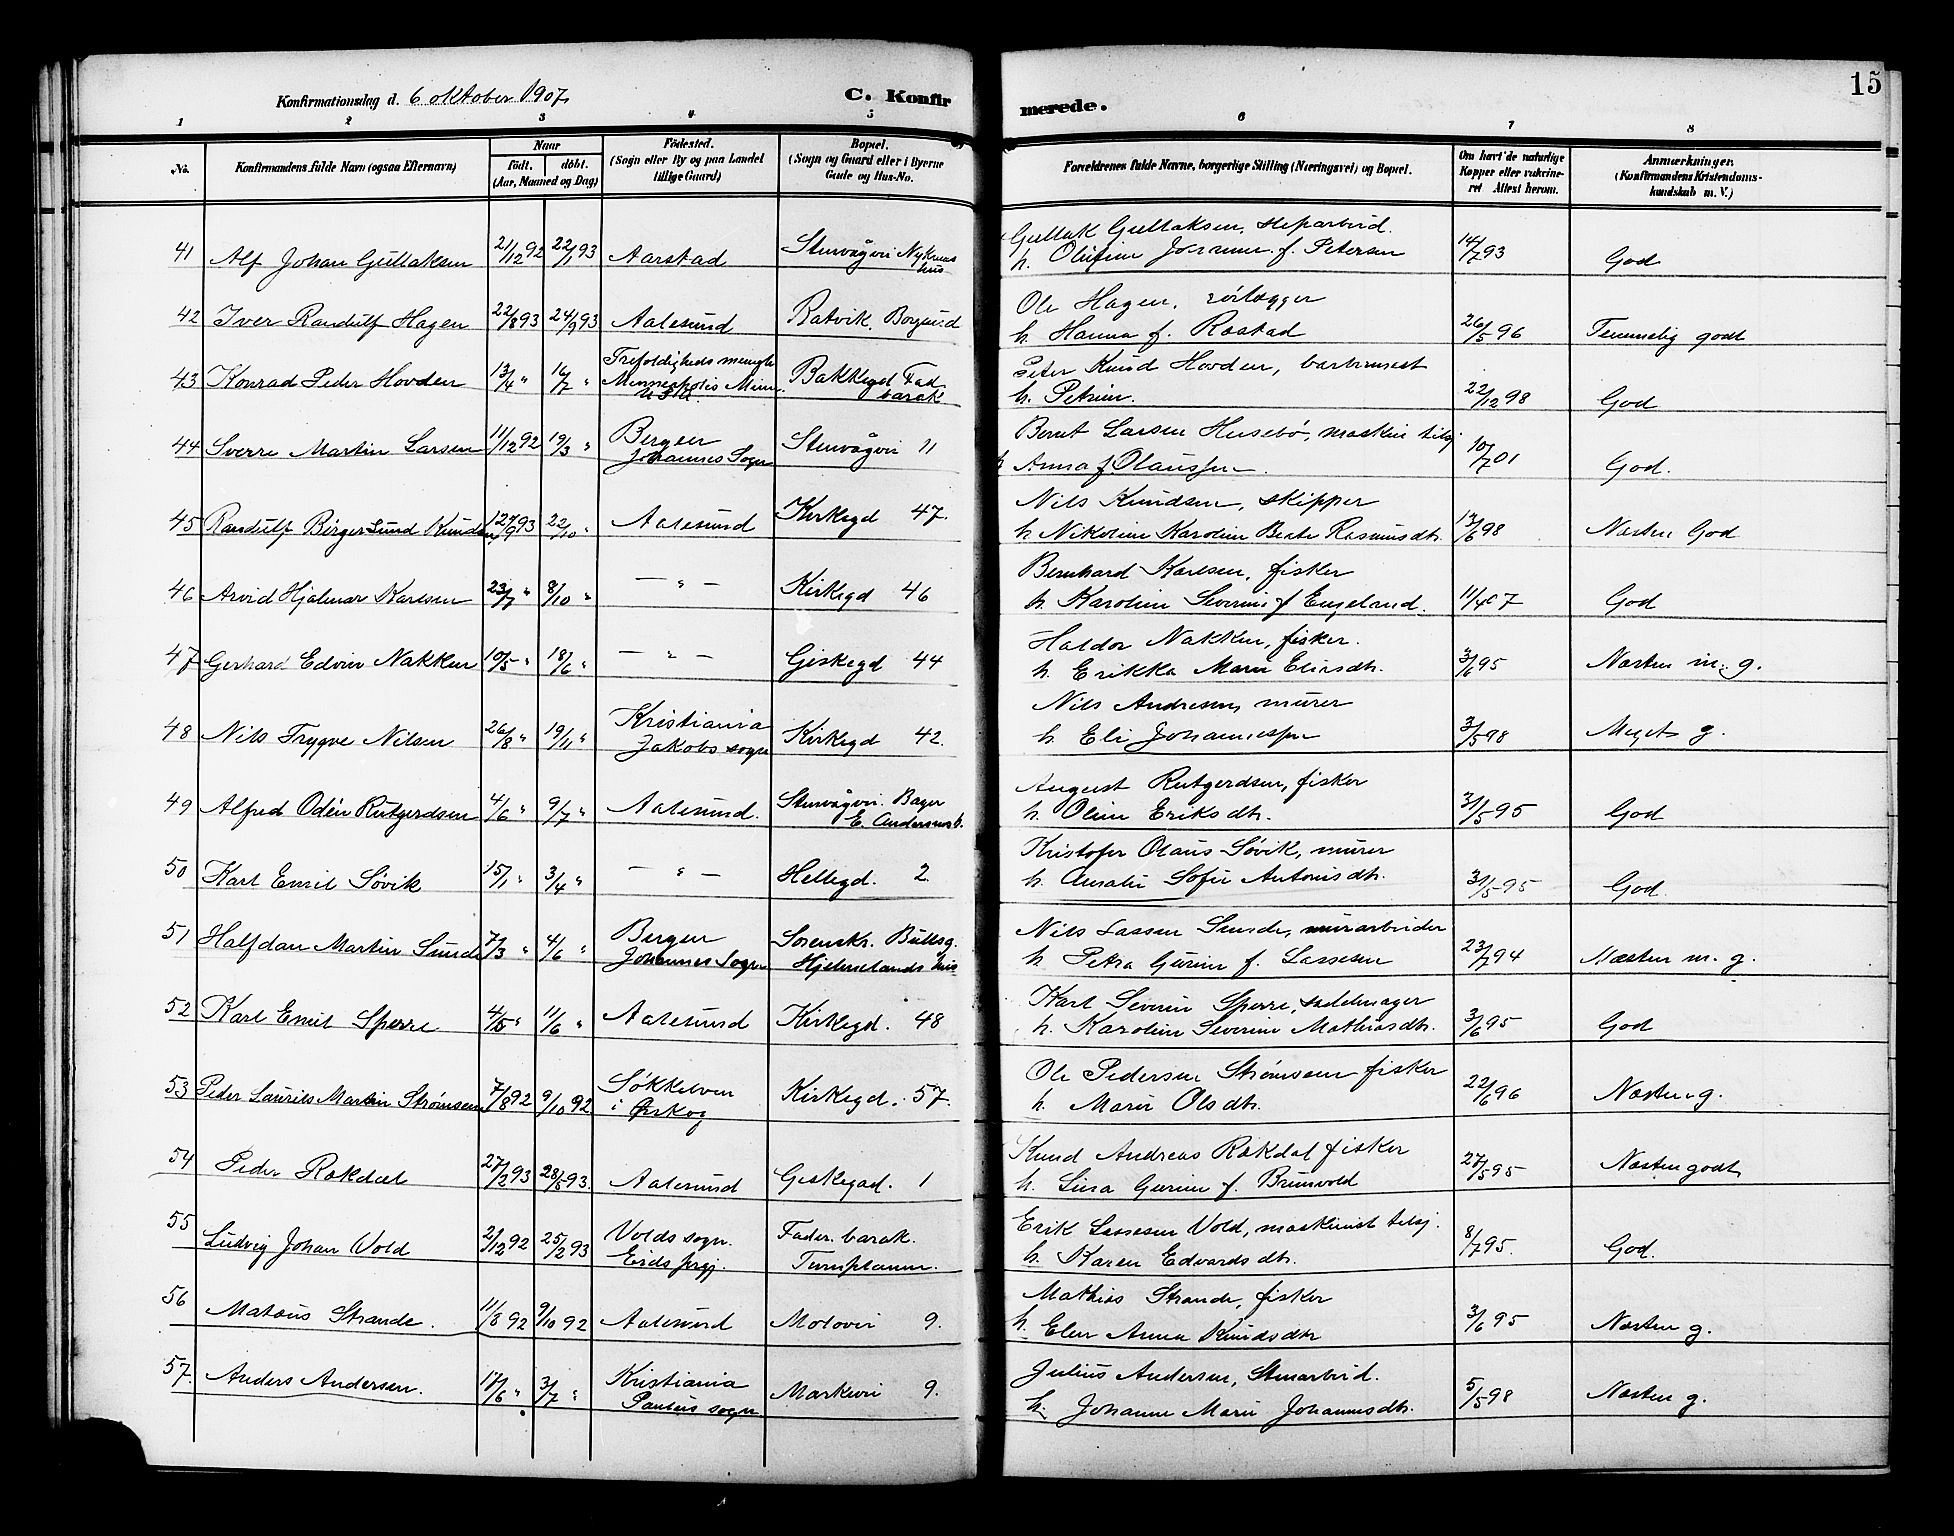 15
Konfirmationsdag d. 6 oktober 1907.
C. Konfirmerede.
1 2 3 4 5 6 7 8
No. Konfirmandens fulde Navn (ogsaa Efternavn) Naar født. døbt. (Aar, Maaned og Dag) Fødested. (Sogn eller By og paa Landet tillige Gaard) Bopæl. (Sogn og Gaard eller i Byerne Gade og Hus-No. Forældrenes fulde Navne, borgerlige Stilling (Næringsvei) og Bopæl. Om havt de naturlige Kopper eller vakcineret Attest herom. Anmærkninger. (Konfirmandens Kristendomskundskab m. V.)
41 Alf Johan Gullaksen 21/12 92 22/1 93 Aarstad Stenvågvei Nykrems hus Gullak Gullaksen,
h. Olufine Johanne f. Petersen 14/7 93 God
42 Iver Randulf Hagen 22/8 93 24/9 93 Aalesund Ratvik, Borgund Ole Hagen, rörlægger
h. Hanna f. Rastad 26/5 96 Temmelig godt
43 Konrad Peder Hovden 13/4 " 16/7 " Trefoldigheds mengh. Minneapolis Minn. USA. Bakkegd Fad. barak Peter Knud Hovden,
h. Petrine. 22/12 98 God
44 Sverre Martin Larsen 11/12 92 19/3 " Bergen Johannes Sogn Stenvågvei 11 Bernt Larsen Husebö, maskin tilsj
h. Anna f. Olaussen. 10/7 01 God.
45 Randulf Birger Lund Knudsen 12/9 93 22/10 " Aalesund Kirkegd 47. Nils Knudsen, skipper
h. Nikoline Karoline Beate Rasmusdtr. 13/6 98 Næsten God
46 Arvid Hjalmar Karlsen 23/7 " 8/10 " — " — Kirkegd 46 Bernhard Karlsen, fisker
h. Karoline Severine f. Engeland. 11/4 07 God
47 Gerhard Edvin Nakken 10/5 " 18/6 " — " — Giskegd 44 Haldor Nakken, fisker.
h. Erikka Marie Eliasdtr. 3/6 95 Næsten m. g.
48 Nils Trygve Nilsen 26/8 " 19/11 " Kristiania Jakobs sogn Kirkegd 42. Nils Andresen, murer
h. Eli Johannessen 3/5 98 Meget g.
49 Alfred Odén Rutgerdsen 4/6 " 9/7 " Aalesund. Stenvågvei. Bager E. Andersens h. August Rutgerdsen, fisker
h. Oline Eriksdtr. 31/5 95 God
50 Karl Emil Søvik 15/1 " 3/4 " — " — Hellegd. 2. Kristofer Olaus Søvik, murer
h. Amalie Sofie Antonisdtr. 31/5 95 God.
51 Halfdan Martin Sunde 7/3 " 4/6 " Bergen Johannes Sogn Sorenskr. Bullsg. Hjelmelands hus Nils Lassen Sunde, murarbeider
h. Petra Gurine f. Lassesen 23/7 94 Næsten m. g.
52 Karl Emil Sperre 4/5 " 11/6 " Aalesund Kirkegd. 48 Karl Severin Sperre, sadelmager
h. Karoline Severine Mathiasdtr. 3/6 95 God
53 Peder Laurits Martin Strømsem 7/8 92 9/10 92 Søkkelven i Ørskog Kirkegd. 57. Ole Pedersen Strømsem fisker
h. Marie Olsdtr. 22/6 96 Næsten g.
54 Peder Rokdal 27/2 93 28/5 93. Aalesund Giskegad. 1 Knud Andreas Rokdal fisker
h. Lina Gurine f. Brunvold 27/5 95 Næsten godt
55 Ludvig Johan Vold 2/12 92 25/2 93 Volds sogn. Eids prgj. Fader. barak. Turnplanen. Erik Lassesen Vold, maskinist tilsj.
h. Karen Edvardsdtr. 8/7 95. God.
56 Mataus Strande. 11/8 92 9/10 92 Aalesund Moloveii 9. Mathias Strande, fisker
h. Elen Anna Knudsdtr 3/6 95 Næsten g.
57. Anders Andersen. 17/6 " 3/7 " Kristiania Paulus sogn Markevei 9. Julius Andersen, Stenarbeid.
h. Johanne Marie Johannesdtr. 5/5 98 Næsten g.